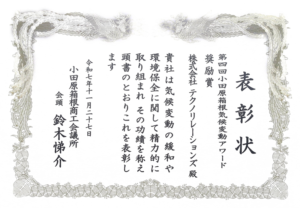 表彰状
第四回小田原箱根気候変動アワード
奨励賞
株式会社 テクノリレーションズ 殿
貴社は気候変動の緩和や
環境保全に関して精力的に
取り組まれ その功績を称え
頭書のとおりこれを表彰し
ます
令和七年十一月二十七日
小田原箱根商工会議所
会頭 鈴木悌介